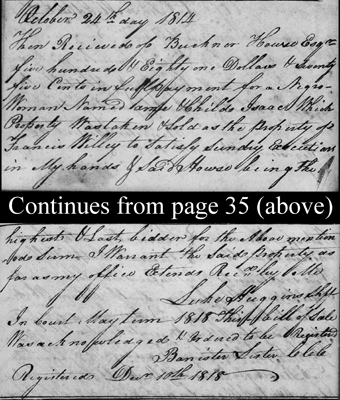 October 24th day 1814
Then Received of Buckner House Esqr
five hundred & Eighty one Dollars & Twenty
five Cints in full payment for a Negro
Woman Named & Childe Isaac Which
Property Was taken & Sold as the Property of
Francis Willey to Satisfy Sundry Execution
in My hands & Said House being the
Continues from page 35 (above)
highest & Last bidder for the Above mention
Sum I Warrant the Said Property as
far as my office Extends Recd by Me
Luke Huggins Shff
In Court May term 1818 This bill of Sale
Was acknowledged & ordered to be Registered
Banister Lester Clk
Registered Decr 10th 1818